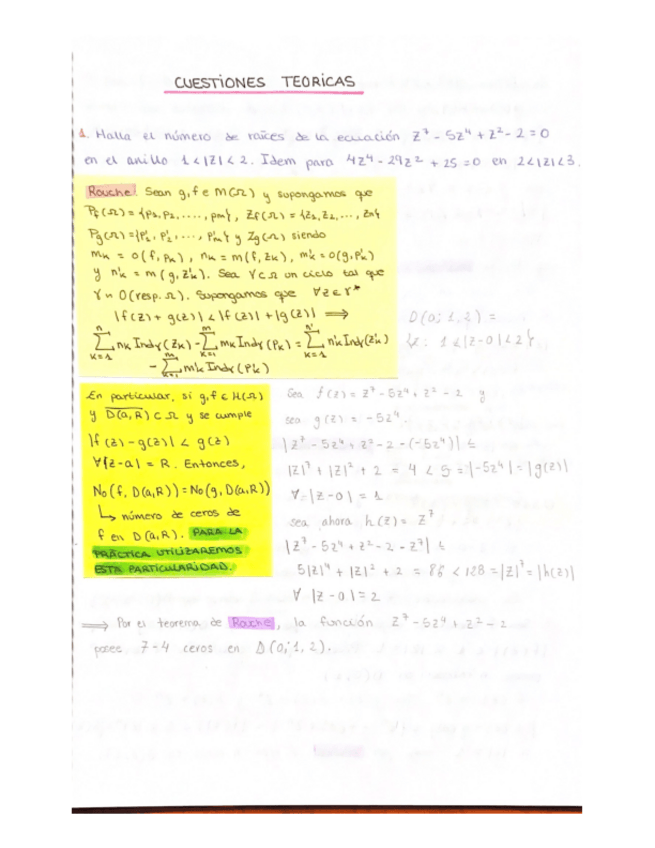 CUESTIONES TEORICAS
1. Halla el número de raíces de la ecuación z⁷ - 5z⁴ + z² - 2 = 0
en el anillo 1 < |z| < 2. Idem para 4z⁴ - 29z² + 25 = 0 en 2 < |z| < 3.
Rouche. Sean g, f ∈ M(Ω) y supongamos que
P_f(Ω) = {p₁, p₂, ...., p_m}, Z_f(Ω) = {z₁, z₂, ..., z_n}
P_g(Ω) = {p'₁, p'₂, ...., p'_m'} y Z_g(Ω) siendo
m_k = o(f, p_k), n_k = m(f, z_k), m'_k = o(g, p'_k)
y n'_k = m(g, z'_k). Sea γ ⊂ Ω un ciclo tal que
γ ~ 0 (resp. Ω). Supongamos que ∀z ∈ γ*
|f(z) + g(z)| < |f(z)| + |g(z)| ⟹
∑_{k=1}^{n} n_k Ind_γ(z_k) - ∑_{k=1}^{m} m_k Ind_γ(p_k) = ∑_{k=1}^{n'} n'_k Ind_γ(z'_k)
- ∑_{k=1}^{m'} m'_k Ind_γ(p'_k)
D(0; 1, 2) =
{z : 1 < |z - 0| < 2}
En particular, si g, f ∈ H(Ω)
y D̅(̅a̅,̅ ̅R̅)̅ ⊂ Ω y se cumple
|f(z) - g(z)| < g(z)
∀|z - a| = R. Entonces,
N₀(f, D(a,R)) = N₀(g, D(a,R))
↳ número de ceros de
f en D(a,R). PARA LA
PRÁCTICA UTILIZAREMOS
ESTA PARTICULARIDAD.
Sea f(z) = z⁷ - 5z⁴ + z² - 2 y
sea g(z) = -5z⁴.
|z⁷ - 5z⁴ + z² - 2 - (-5z⁴)| ≤
|z|⁷ + |z|² + 2 = 4 < 5 = |-5z⁴| = |g(z)|
∀ |z - 0| = 1
sea ahora h(z) = z⁷
|z⁷ - 5z⁴ + z² - 2 - z⁷| ≤
5|z|⁴ + |z|² + 2 = 86 < 128 = |z|⁷ = |h(z)|
∀ |z - 0| = 2
⟹ Por el teorema de Rouche, la función z⁷ - 5z⁴ + z² - 2
posee 7 - 4 ceros en D(0; 1, 2).